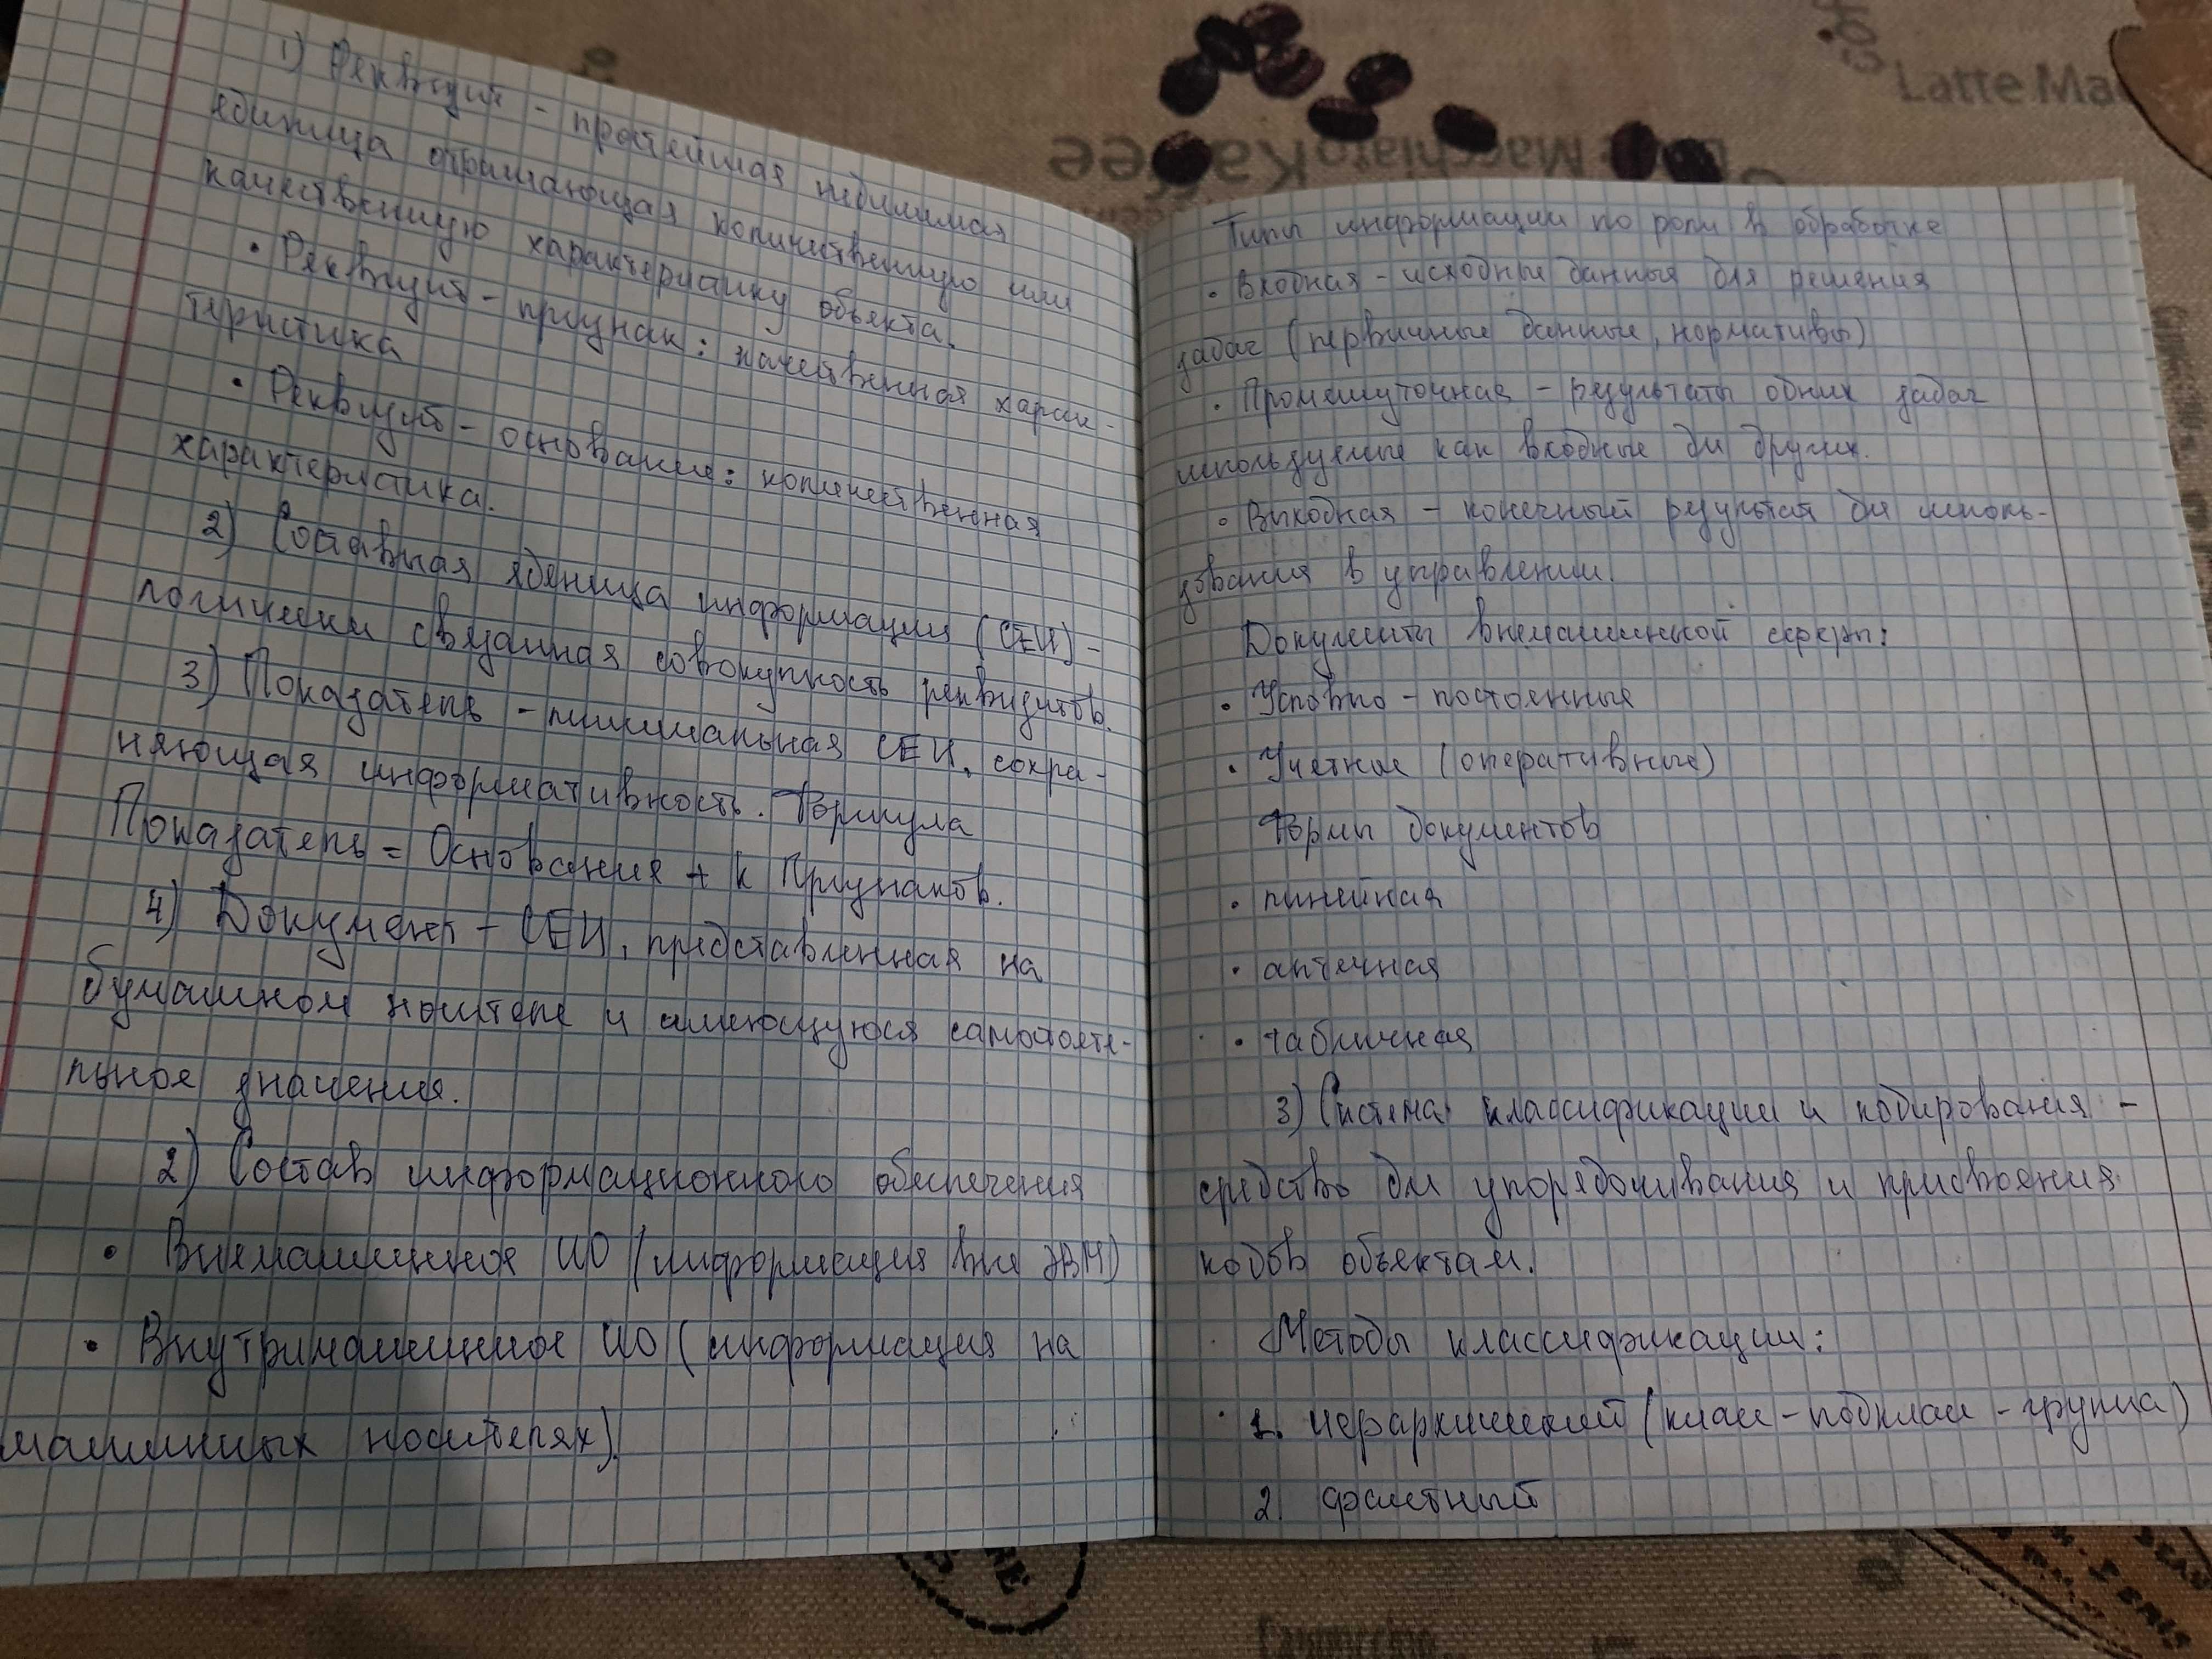 1) Реквизит - простейшая неделимая
единица отражающая количественную или
качественную характеристику объекта.
• Реквизит - признак: качественная харак-
теристика
• Реквизит - основание: количественная
характеристика.
2) Составная еденица информации (СЕИ) -
логически связанная совокупность реквизитов.
3) Показатель - минимальная СЕИ, сохра-
няющая информативность. Формула
Показатель = Основания + к Признаков.
4) Документ - СЕИ, представленная на
бумажном носителе и имеющуюся самостояте-
льное значения.
2) Состав информационного обеспечения
• Внемашинное ИО (информация вне ЭВМ)
• Внутримашинное ИО (информация на
машинных носителях).
Типы информации по роли в обработке
• Входная - исходные данные для решения
задач (первичные данные, нормативы)
• Промежуточная - результаты одних задач
используемые как входные для других.
• Выходная - конечный результат для исполь-
зования в управлении.
Документы внемашинной сферы:
• Условно - постоянные
• Учетные (оперативные)
Формы документов
• линейная
• анкетная
• табличная
3) Система классификации и кодирования -
средство для упорядочивания и присвоения
кодов объектам.
Методы классификации:
1. иерархический (класс - подкласс - группа)
2. фасетный
Latte Ma
Macchiato
Kaffee